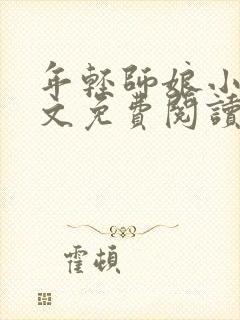 年輕師娘小
文免費閱讀
霍頓